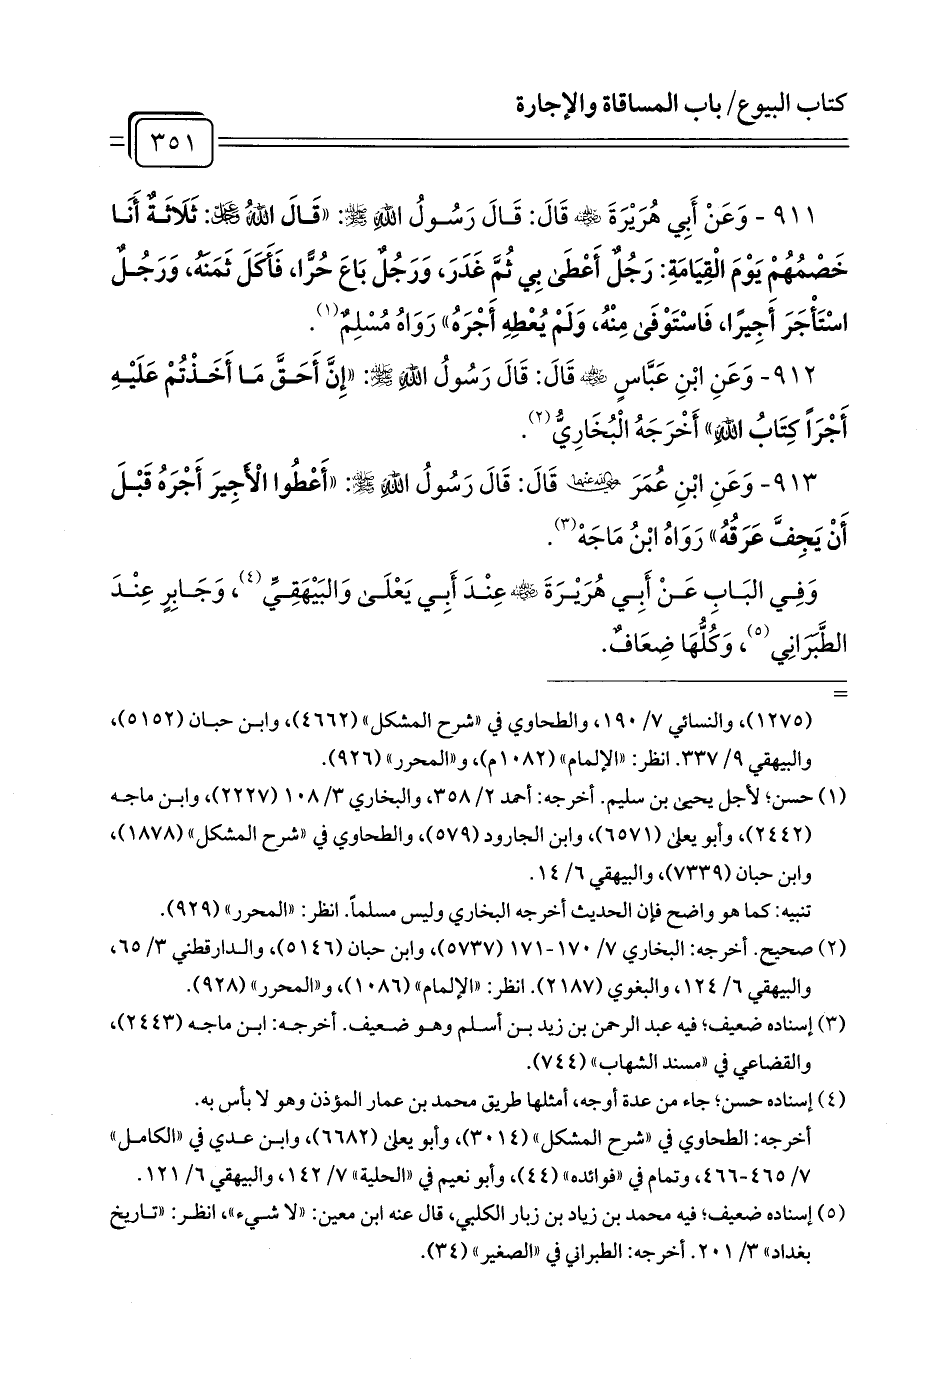 كتاب البيوع/ باب المساقاة والإجارة
٣٥١
٩١١ - وَعَنْ أَبِي هُرَيْرَةَ ﵁ قَالَ: قَالَ رَسُولُ اللهِ ﷺ: «قَالَ اللهُ ﷿: ثَلَاثَةٌ أَنَا
خَصْمُهُمْ يَوْمَ الْقِيَامَةِ: رَجُلٌ أَعْطَى بِي ثُمَّ غَدَرَ، وَرَجُلٌ بَاعَ حُرًّا، فَأَكَلَ ثَمَنَهُ، وَرَجُلٌ
اسْتَأْجَرَ أَجِيرًا، فَاسْتَوْفَى مِنْهُ، وَلَمْ يُعْطِهِ أَجْرَهُ» رَوَاهُ مُسْلِمٌ(١).
٩١٢- وَعَنِ ابْنِ عَبَّاسٍ ﵁ قَالَ: قَالَ رَسُولُ اللهِ ﷺ: «إِنَّ أَحَقَّ مَا أَخَذْتُمْ عَلَيْهِ
أَجْرَاً كِتَابُ اللهِ» أَخْرَجَهُ الْبُخَارِيُّ(٢).
٩١٣- وَعَنِ ابْنِ عُمَرَ ﵄ قَالَ: قَالَ رَسُولُ اللهِ ﷺ: «أَعْطُوا الْأَجِيرَ أَجْرَهُ قَبْلَ
أَنْ يَجِفَّ عَرَقُهُ» رَوَاهُ ابْنُ مَاجَهْ(٣).
وَفِي البَابِ عَنْ أَبِي هُرَيْرَةَ ﵁ عِنْدَ أَبِي يَعْلَى وَالبَيْهَقِيِّ(٤)، وَجَابِرٍ عِنْدَ
الطَّبَرَانِي(٥)، وَكُلُّهَا ضِعَافٌ.
=
(١٢٧٥)، والنسائي ٧/ ١٩٠، والطحاوي في «شرح المشكل» (٤٦٦٢)، وابن حبان (٥١٥٢)،
والبيهقي ٩/ ٣٣٧. انظر: «الإلمام» (١٠٨٢م)، و«المحرر» (٩٢٦).
(١) حسن؛ لأجل يحيى بن سليم. أخرجه: أحمد ٢/ ٣٥٨، والبخاري ٣/ ١٠٨ (٢٢٢٧)، وابن ماجه
(٢٤٤٢)، وأبو يعلى (٦٥٧١)، وابن الجارود (٥٧٩)، والطحاوي في «شرح المشكل» (١٨٧٨)،
وابن حبان (٧٣٣٩)، والبيهقي ٦/ ١٤.
تنبيه: كما هو واضح فإن الحديث أخرجه البخاري وليس مسلماً. انظر: «المحرر» (٩٢٩).
(٢) صحيح. أخرجه: البخاري ٧/ ١٧٠-١٧١ (٥٧٣٧)، وابن حبان (٥١٤٦)، والدارقطني ٣/ ٦٥،
والبيهقي ٦/ ١٢٤، والبغوي (٢١٨٧). انظر: «الإلمام» (١٠٨٦)، و«المحرر» (٩٢٨).
(٣) إسناده ضعيف؛ فيه عبد الرحمن بن زيد بن أسلم وهو ضعيف. أخرجه: ابن ماجه (٢٤٤٣)،
والقضاعي في «مسند الشهاب» (٧٤٤).
(٤) إسناده حسن؛ جاء من عدة أوجه، أمثلها طريق محمد بن عمار المؤذن وهو لا بأس به.
أخرجه: الطحاوي في «شرح المشكل» (٣٠١٤)، وأبو يعلى (٦٦٨٢)، وابن عدي في «الكامل»
٧/ ٤٦٥-٤٦٦، وتمام في «فوائده» (٤٤)، وأبو نعيم في «الحلية» ٧/ ١٤٢، والبيهقي ٦/ ١٢١.
(٥) إسناده ضعيف؛ فيه محمد بن زياد بن زبار الكلبي، قال عنه ابن معين: «لا شيء»، انظر: «تاريخ
بغداد» ٣/ ٢٠١. أخرجه: الطبراني في «الصغير» (٣٤).